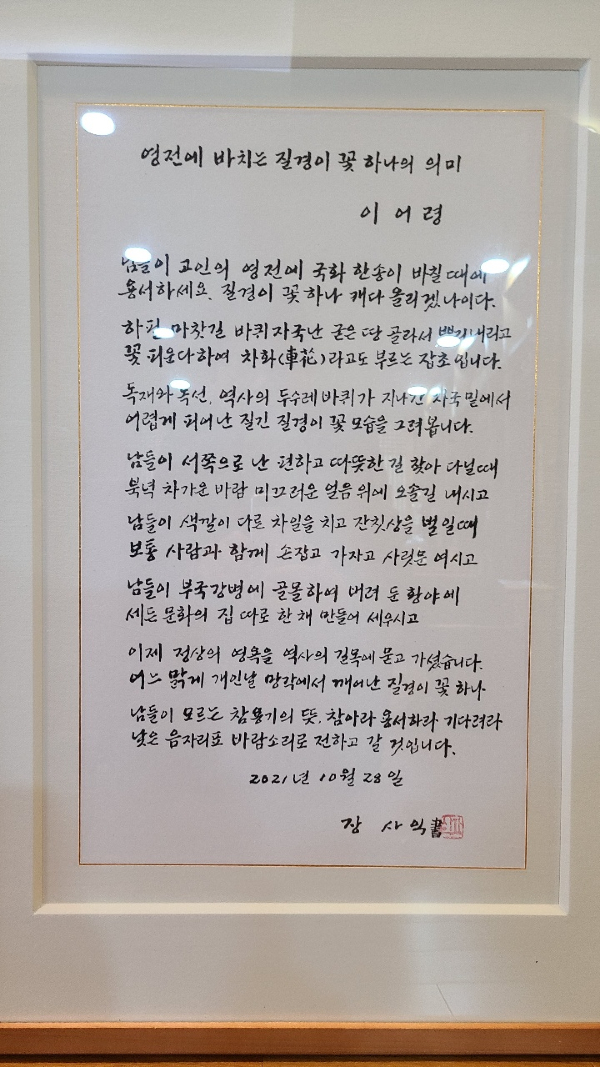 영전에 바치는 질경이 꽃 하나의 의미
이 어 령
남들이 고인의 영전에 국화 한송이 바칠 때에
용서하세요. 질경이 꽃 하나 캐다 올리겠나이다.
하필 마찻길 바퀴자국난 굳은 땅 골라서 뿌리내리고
꽃 피운다하여 차화(車花)라고도 부르는 잡초입니다.
독재와 독선, 역사의 두수레바퀴가 지나간 자국 밑에서
어렵게 피어난 질긴 질경이 꽃 모습을 그려봅니다.
남들이 서쪽으로 난 편하고 따뜻한 길 찾아 다닐 때
북녘 차가운 바람 미끄러운 얼음 위에 오솔길 내시고
남들이 색깔이 다른 차일을 치고 잔칫상을 벌일 때
보통 사람과 함께 손잡고 가자고 사릿문 여시고
남들이 부국강병에 골몰하여 버려 둔 황야에
세든 문화의 집 따로 한 채 만들어 세우시고
이제 정상의 영욕을 역사의 길목에 묻고 가셨습니다.
어느 맑게 개인날 망각에서 깨어난 질경이 꽃 하나
남들이 모르는 참용기의 뜻, 참아라 용서하라 기다려라
낮은 음자리표 바람소리로 전하고 갈 것입니다.
2021년 10월 28일
장 사 익 書